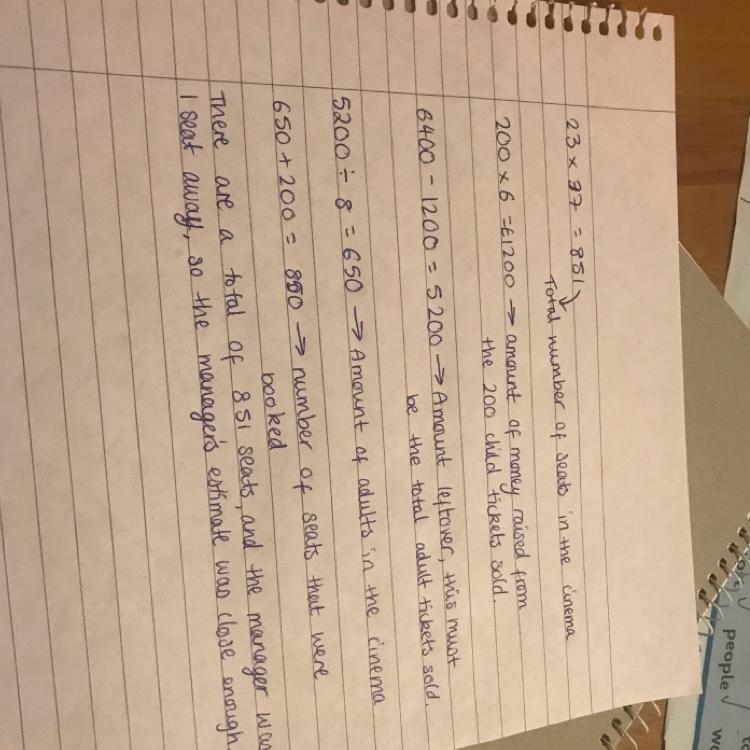 23 x 37 = 851
Total number of seats in the cinema
200 x 6 = £1200 → amount of money raised from
the 200 child tickets sold.
6400 - 1200 = 5200 → Amount leftover, this must
be the total adult tickets sold.
5200 ÷ 8 = 650 → Amount of adults in the cinema
650 + 200 = 850 → number of seats that were
booked
There are a total of 851 seats, and the manager was
1 seat away, so the manager's estimate was close enough.
people